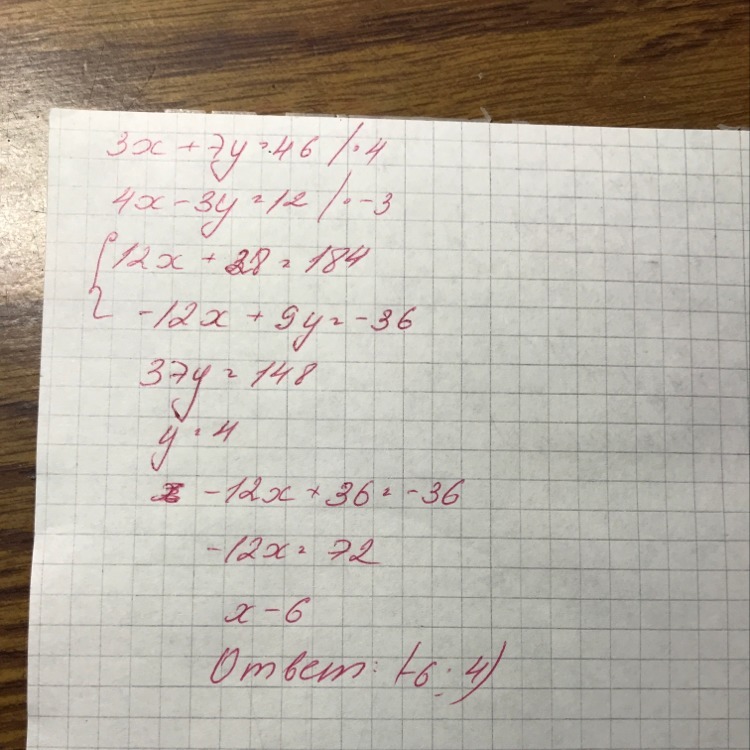 3x + 7y = 46 / · 4
4x - 3y = 12 / · -3
{ 12x + 28 = 184
-12x + 9y = -36
37y = 148
y = 4
-12x + 36 = -36
-12x = 72
x - 6
Ответ: (-6; 4)